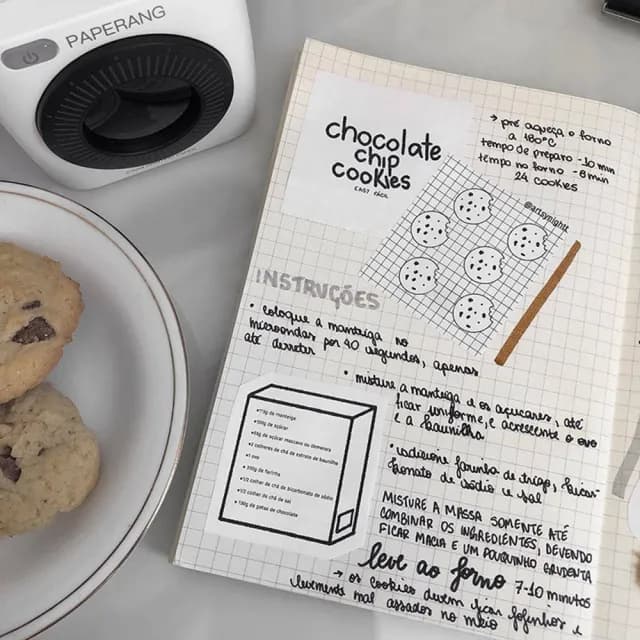 PAPERANG
chocolate
chip
cookies
EASY FÁCIL
→ pré aqueça o forno
a 180°C
tempo de preparo -10 min
tempo no forno -8 min
24 cookies
@artsynightt
INSTRUÇÕES
• coloque a manteiga no
microondas por 40 segundos, apenas
até derreter
• misture a manteiga e os açucares, até
ficar uniforme, e acrescente o ovo
e a baunilha
•115g de manteiga
de açúcar
de açúcar mascavo ou demerara
•2 colheres de chá de extrato de baunilha
•1 ovo
de farinha
•1/2 colher de chá de bicarbonato de sódio
•1/2 colher de chá de sal
de gotas de chocolate
• adicione farinha de trigo, bicar-
bonato de sódio e sal
MISTURE A MASSA SOMENTE ATÉ
COMBINAR OS INGREDIENTES, DEVENDO
FICAR MACIA E UM POUQUINHO GRUDENTA
leve ao forno 7-10 minutos
→ os cookies devem ficar fofinhos e
levemente mal assados no meio